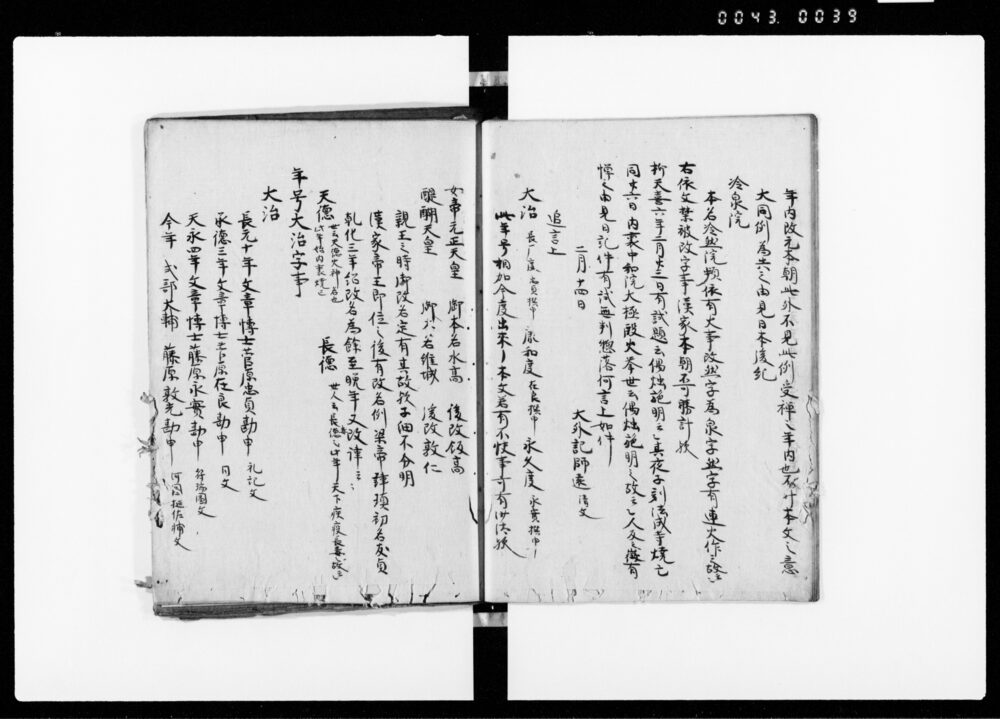 0043.0039
年内改元本朝此外不見此例受禅之年内也不叶本文之意
大同例為 之由見日本後紀
冷泉院
本名冷然院頻依有火事改然字為泉字然字有連火作之故云々
右依文禁被改字事漢家本朝不可勝計後
天喜六年二月廿三日有試題云偶燭施明之其夜子刻法成寺焼亡
同廿六日内裏中和院大極殿火挙世云偶燭施明之故云々人及
憚之由見日記件有試無判 落何言上如件
二月十四日 大外記師遠 請文
追言上
大治 長 度忠貞撰申 康和度在良撰申 永久度永実撰申
此年号相如今度出来 本文若有不快事 可有沙汰後
如帝元正天皇 御本名氷高 後改飯高
醍醐天皇 御 名維城 後改敦仁
親王之時御改名定有其故歟子細不分明
漢家帝王即位之後有改名例梁帝諱瑱初名友貞
乾化三年詔改名為鍠至晩年又改諱云々
天徳 世云天徳火神 也此年始内裏焼亡 長徳 世人云長徳 此年天下疾疫長毒故云々
年号大治字事
大治
長元十年文章博士菅原忠貞勘申 礼記文
承徳三年文章博士菅原在良勘申 同文
天永四年文章博士藤原永実勘申 符瑞図文
今年 式部大輔 藤原敦光勘申 河図挺佐輔文